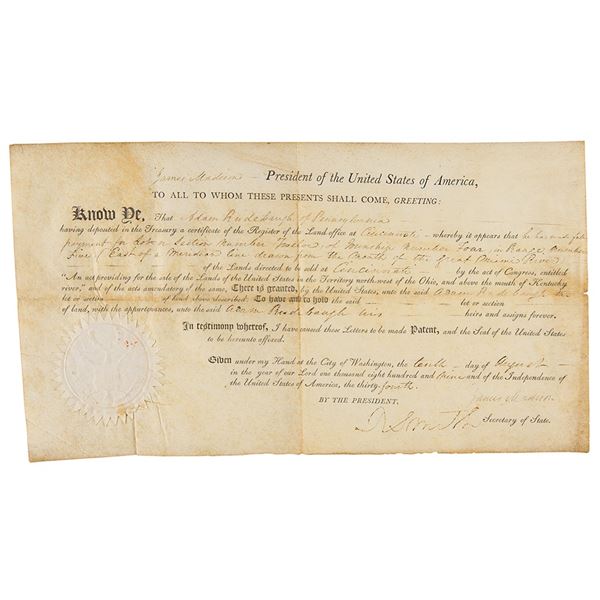 James Madison President of the United States of America,
TO ALL TO WHOM THESE PRESENTS SHALL COME, GREETING:
Know Ye, That Adam Rodebaugh of Pennsylvania
having deposited in the Treasury a certificate of the Register of the Land office at Cincinnati whereby it appears that he has made full
payment for Section Number of Township Number Four in Range Number
Five East of a Meridian line drawn from the Mouth of the Great Miami River
of the Lands directed to be sold at Cincinnati by the act of Congress, entitled
"An act providing for the sale of the Lands of the United States in the Territory northwest of the Ohio, and above the mouth of Kentucky
river," and of the acts amendatory of the same, There is granted, by the United States, unto the said Adam Rodebaugh the
lot or section of land above described: To have and to hold the said lot or section
of land, with the appurtenances, unto the said Adam Rodebaugh his heirs and assigns forever.
In testimony whereof, I have caused these Letters to be made Patent, and the Seal of the United States
to be hereunto affixed.
Given under my Hand at the City of Washington, the tenth day of August
in the year of our Lord one thousand eight hundred and nine and of the Independence of
the United States of America, the thirty-fourth.
BY THE PRESIDENT, James Madison
R Smith Secretary of State.